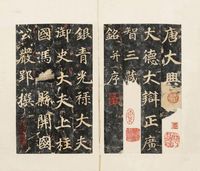 唐大興
大德大辯正廣
智三藏
銘并序
銀青光祿大夫
御史大夫上柱
國馮縣開國
公嚴郢撰